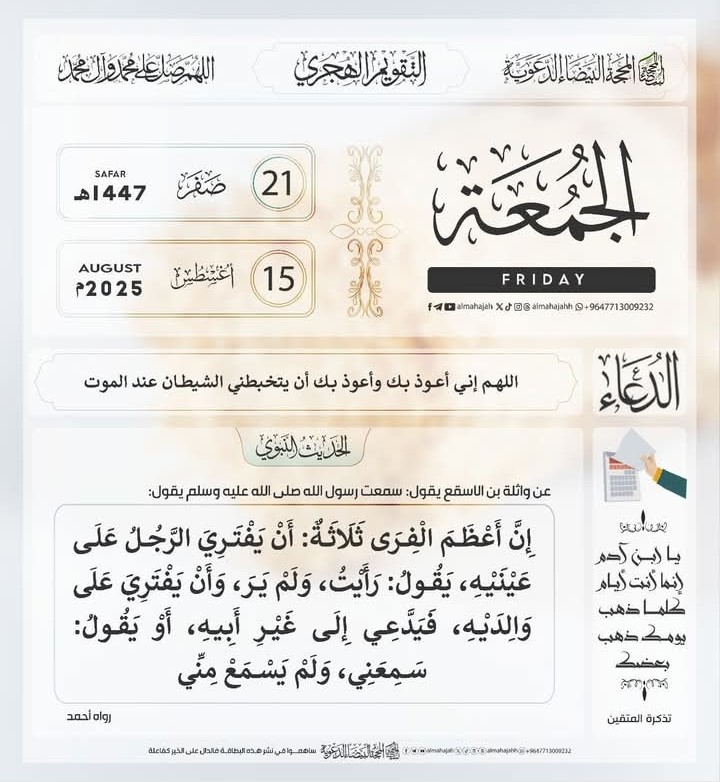 المحجة البيضاء الدعوية
التقويم الهجري
اللهم صل على محمد وآل محمد
الجمعة
FRIDAY
almahajah almahajahh +9647713009232
21 صفر SAFAR 1447هـ
15 أغسطس AUGUST 2025م
الدعاء
اللهم إني أعوذ بك وأعوذ بك أن يتخبطني الشيطان عند الموت
الحديث النبوي
عن واثلة بن الاسقع يقول: سمعت رسول الله صلى الله عليه وسلم يقول:
إِنَّ أَعْظَمَ الْفِرَى ثَلَاثَةٌ: أَنْ يَفْتَرِيَ الرَّجُلُ عَلَى
عَيْنَيْهِ، يَقُولُ: رَأَيْتُ، وَلَمْ يَرَ، وَأَنْ يَفْتَرِيَ عَلَى
وَالِدَيْهِ، فَيَدَّعِي إِلَى غَيْرِ أَبِيهِ، أَوْ يَقُولُ:
سَمِعَنِي، وَلَمْ يَسْمَعْ مِنِّي
رواه أحمد
يا ابن آدم
إنما أنت أيام
كلما ذهب
يومك ذهب
بعضك
تذكرة المتقين
ساهموا في نشر هذه البطاقة فالدال على الخير كفاعلة المحجة البيضاء الدعوية almahajah almahajahh +9647713009232